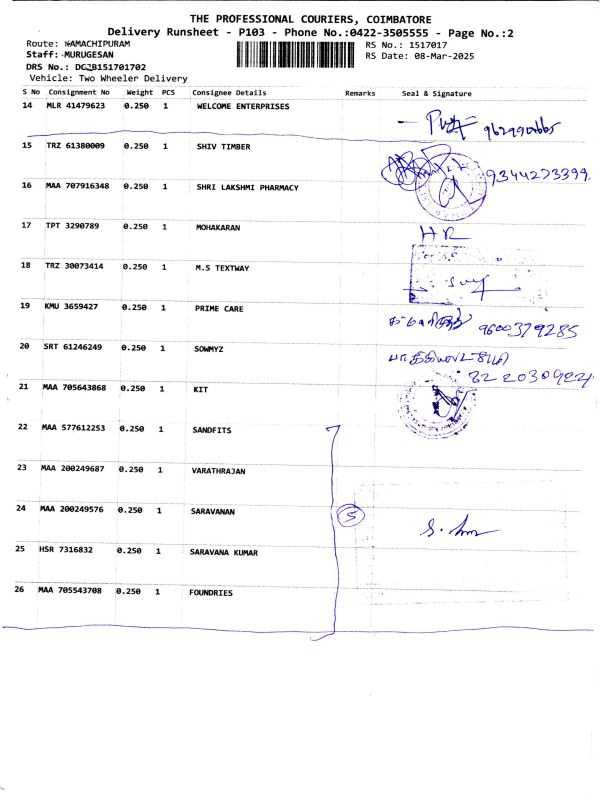 THE PROFESSIONAL COURIERS, COIMBATORE
Delivery Runsheet - P103 - Phone No.:0422-3505555 - Page No.:2
Route: NAMACHIPURAM
RS No.: 1517017
Staff: MURUGESAN
RS Date: 08-Mar-2025
DRS No.: DCJB151701702
Vehicle: Two Wheeler Delivery
S No Consignment No Weight PCS Consignee Details Remarks Seal & Signature
14 MLR 41479623 0.250 1 WELCOME ENTERPRISES
15 TRZ 61380009 0.250 1 SHIV TIMBER
16 MAA 707916348 0.250 1 SHRI LAKSHMI PHARMACY 9344273399.
17 TPT 3290789 0.250 1 MOHAKARAN HR
18 TRZ 30073414 0.250 1 M.S TEXTWAY
19 KMU 3659427 0.250 1 PRIME CARE 9600379285
20 SRT 61246249 0.250 1 SOWMYZ
21 MAA 705643868 0.250 1 KIT
22 MAA 577612253 0.250 1 SANDFITS
23 MAA 200249687 0.250 1 VARATHRAJAN
24 MAA 200249576 0.250 1 SARAVANAN 5
25 HSR 7316832 0.250 1 SARAVANA KUMAR
26 MAA 705543708 0.250 1 FOUNDRIES